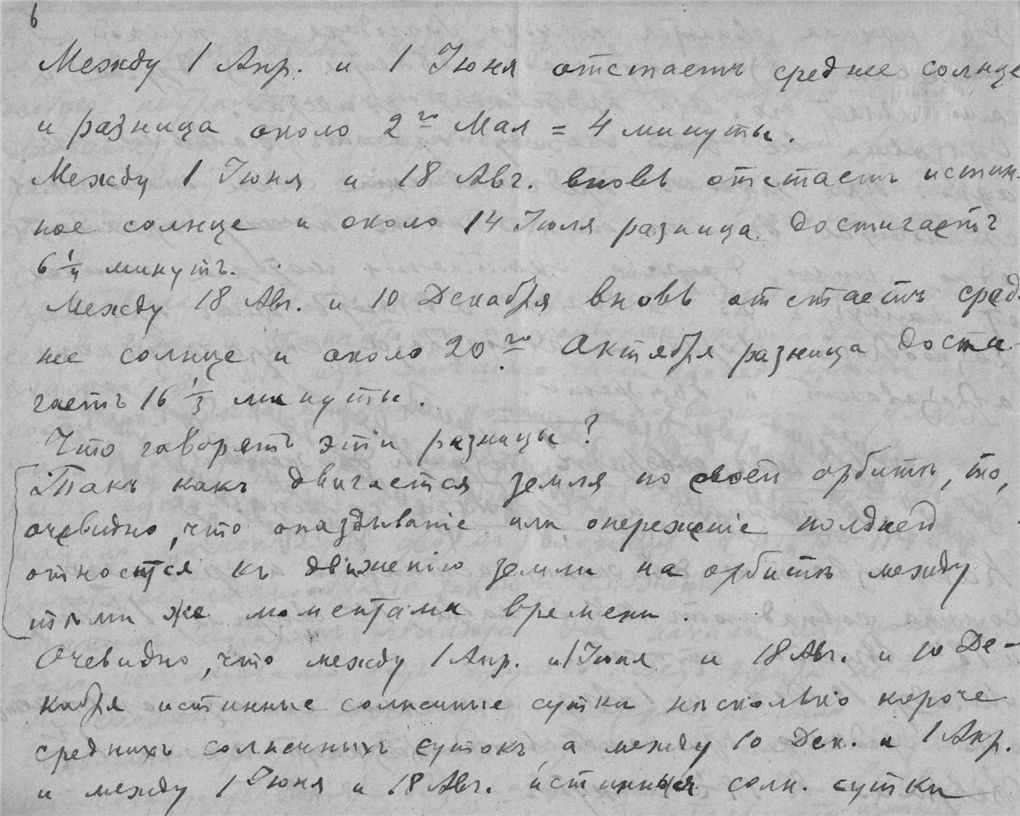 6
Между 1 Апр. и 1 Июня отстаетъ среднее солнце
и разница около 2го Мая = 4 минуты.
Между 1 Июня и 18 Авг. вновь отстаетъ истин-
ное солнце и около 14 Июля разница достигаетъ
6 1/4 минутъ.
Между 18 Авг. и 10 Декабря вновь отстаетъ сред-
нее солнце и около 20го Октября разница дости-
гаетъ 16 1/3 минуты.
Что говорятъ эти разницы?
Такъ какъ двигается земля по своей орбитѣ, то,
очевидно, что опаздываніе или опереженіе полдней
относится къ движенію земли на орбитѣ между
тѣми же моментами времени.
Очевидно, что между 1 Апр. и 1 Июня и 18 Авг. и 10 Де-
кабря истинные солнечные сутки нѣсколько короче
среднихъ солнечныхъ сутокъ а между 10 Дек. и 1 Апр.
и между 1 Июня и 18 Авг. истинныя солн. сутки